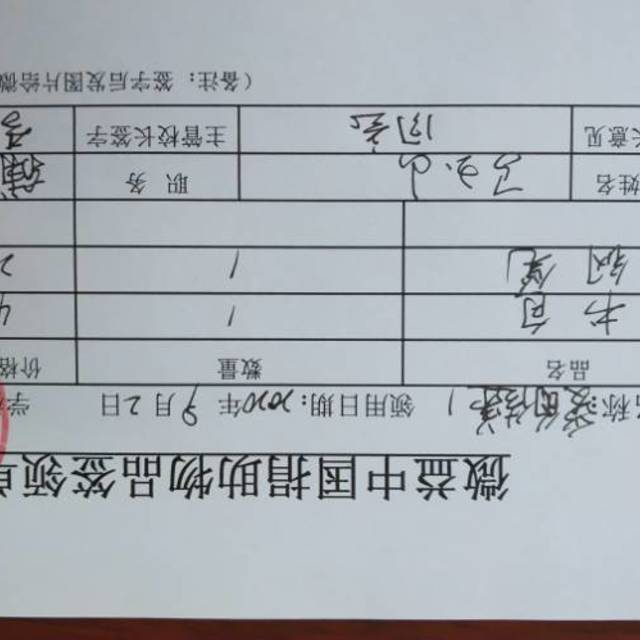 微益中国捐助物品签领单
名称: 领用日期: 2020年 9月 2日 学校
品名 数量 价格
书包 1 4
钢笔 1 2
姓名 职务
长意见 同意 主管校长签字
(备注: 签字后发图片给微